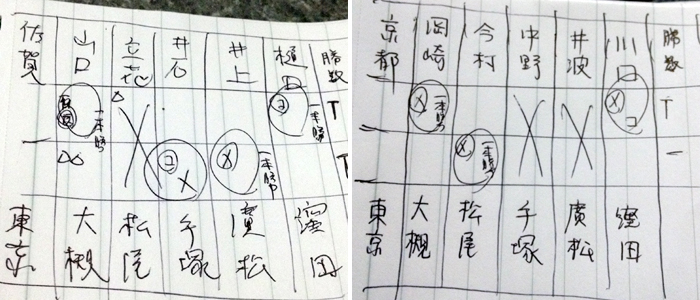 佐賀 山口 立花 井石 井上 樋口 勝数
一本勝 コ 一本勝 T
コ メ メ 一本勝 T
東京 大槻 松尾 手塚 廣松 窪田
京都 岡崎 今村 中野 井波 川口 勝数
メ 一本勝 メ コ T
メ 一本勝 一
東京 大槻 松尾 手塚 廣松 窪田